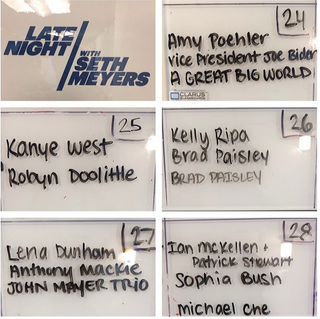 LATE
NIGHT
WITH
SETH
MEYERS
24
Amy Poehler
vice President Joe Biden
A GREAT BIG WORLD
CLARUS
25
Kanye West
Robyn Doolittle
26
Kelly Ripa
Brad Paisley
BRAD PAISLEY
27
Lena Dunham
Anthony Mackie
JOHN MAYER TRIO
28
Ian McKellen +
Patrick Stewart
Sophia Bush
michael che